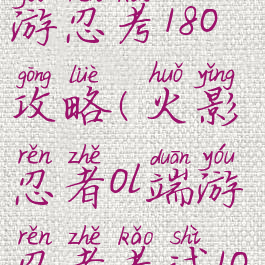 游忍考180
gōng lüè huǒ yǐng
攻略(火影
rěn zhě duān yóu
忍者ol端游
rěn zhě kǎo shì
忍者考试10